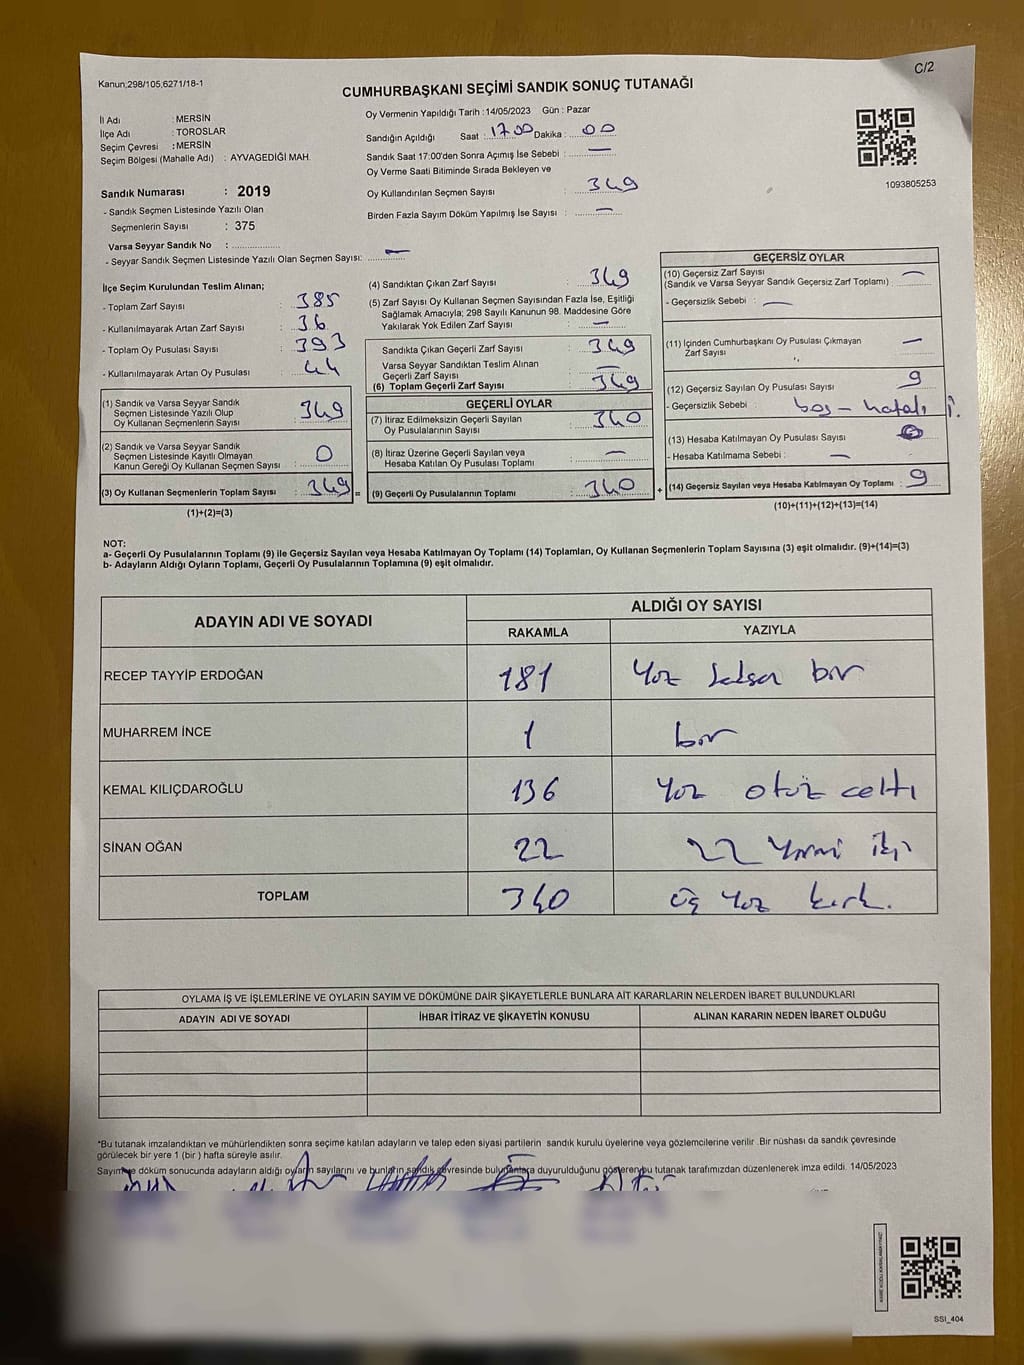 C/2
Kanun;298/105,6271/18-1
CUMHURBAŞKANI SEÇİMİ SANDIK SONUÇ TUTANAĞI
İl Adı : MERSİN
İlçe Adı : TOROSLAR
Seçim Çevresi : MERSİN
Seçim Bölgesi (Mahalle Adı) : AYVAGEDİĞİ MAH.
Sandık Numarası : 2019
- Sandık Seçmen Listesinde Yazılı Olan
Seçmenlerin Sayısı : 375
Varsa Seyyar Sandık No :
- Seyyar Sandık Seçmen Listesinde Yazılı Olan Seçmen Sayısı: —
Oy Vermenin Yapıldığı Tarih :14/05/2023 Gün : Pazar
Sandığın Açıldığı Saat : 17.00 Dakika : 00
Sandık Saat 17:00'den Sonra Açımış İse Sebebi : —
Oy Verme Saati Bitiminde Sırada Bekleyen ve
Oy Kullandırılan Seçmen Sayısı : 349
Birden Fazla Sayım Döküm Yapılmış İse Sayısı : —
1093805253
İlçe Seçim Kurulundan Teslim Alınan;
- Toplam Zarf Sayısı : 385
- Kullanılmayarak Artan Zarf Sayısı : 36
- Toplam Oy Pusulası Sayısı : 393
- Kullanılmayarak Artan Oy Pusulası : 44
(1) Sandık ve Varsa Seyyar Sandık
Seçmen Listesinde Yazılı Olup
Oy Kullanan Seçmenlerin Sayısı : 349
(2) Sandık ve Varsa Seyyar Sandık
Seçmen Listesinde Kayıtlı Olmayan
Kanun Gereği Oy Kullanan Seçmen Sayısı : 0
(3) Oy Kullanan Seçmenlerin Toplam Sayısı : 349 =
(1)+(2)=(3)
(4) Sandıktan Çıkan Zarf Sayısı : 349
(5) Zarf Sayısı Oy Kullanan Seçmen Sayısından Fazla İse, Eşitliği
Sağlamak Amacıyla; 298 Sayılı Kanunun 98. Maddesine Göre
Yakılarak Yok Edilen Zarf Sayısı : —
Sandıkta Çıkan Geçerli Zarf Sayısı : 349
Varsa Seyyar Sandıktan Teslim Alınan
Geçerli Zarf Sayısı : —
(6) Toplam Geçerli Zarf Sayısı : 349
GEÇERLİ OYLAR
(7) İtiraz Edilmeksizin Geçerli Sayılan
Oy Pusulalarının Sayısı : 340
(8) İtiraz Üzerine Geçerli Sayılan veya
Hesaba Katılan Oy Pusulası Toplamı : —
(9) Geçerli Oy Pusulalarının Toplamı : 340 +
GEÇERSİZ OYLAR
(10) Geçersiz Zarf Sayısı : —
(Sandık ve Varsa Seyyar Sandık Geçersiz Zarf Toplamı)
- Geçersizlik Sebebi : —
(11) İçinden Cumhurbaşkanı Oy Pusulası Çıkmayan
Zarf Sayısı : —
(12) Geçersiz Sayılan Oy Pusulası Sayısı : 9
- Geçersizlik Sebebi : boş - hatalı
(13) Hesaba Katılmayan Oy Pusulası Sayısı :
- Hesaba Katılmama Sebebi : —
(14) Geçersiz Sayılan veya Hesaba Katılmayan Oy Toplamı : 9
(10)+(11)+(12)+(13)=(14)
NOT:
a- Geçerli Oy Pusulalarının Toplamı (9) ile Geçersiz Sayılan veya Hesaba Katılmayan Oy Toplamı (14) Toplamları, Oy Kullanan Seçmenlerin Toplam Sayısına (3) eşit olmalıdır. (9)+(14)=(3)
b- Adayların Aldığı Oyların Toplamı, Geçerli Oy Pusulalarının Toplamına (9) eşit olmalıdır.
ADAYIN ADI VE SOYADI ALDIĞI OY SAYISI
RAKAMLA YAZIYLA
RECEP TAYYİP ERDOĞAN 181 Yüz seksen bir
MUHARREM İNCE 1 bir
KEMAL KILIÇDAROĞLU 136 Yüz otuz altı
SİNAN OĞAN 22 22 Yirmi iki
TOPLAM 340 üç yüz kırk.
OYLAMA İŞ VE İŞLEMLERİNE VE OYLARIN SAYIM VE DÖKÜMÜNE DAİR ŞİKAYETLERLE BUNLARA AİT KARARLARIN NELERDEN İBARET BULUNDUKLARI
ADAYIN ADI VE SOYADI İHBAR İTİRAZ VE ŞİKAYETİN KONUSU ALINAN KARARIN NEDEN İBARET OLDUĞU
*Bu tutanak imzalandıktan ve mühürlendikten sonra seçime katılan adayların ve talep eden siyasi partilerin sandık kurulu üyelerine veya gözlemcilerine verilir .Bir nüshası da sandık çevresinde
görülecek bir yere 1 (bir) hafta süreyle asılır.
Sayım ve döküm sonucunda adayların aldığı oyların sayılarını ve bunların sandık çevresinde bulunanlara duyurulduğunu gösteren bu tutanak tarafımızdan düzenlenerek imza edildi. 14/05/2023
SSI_404